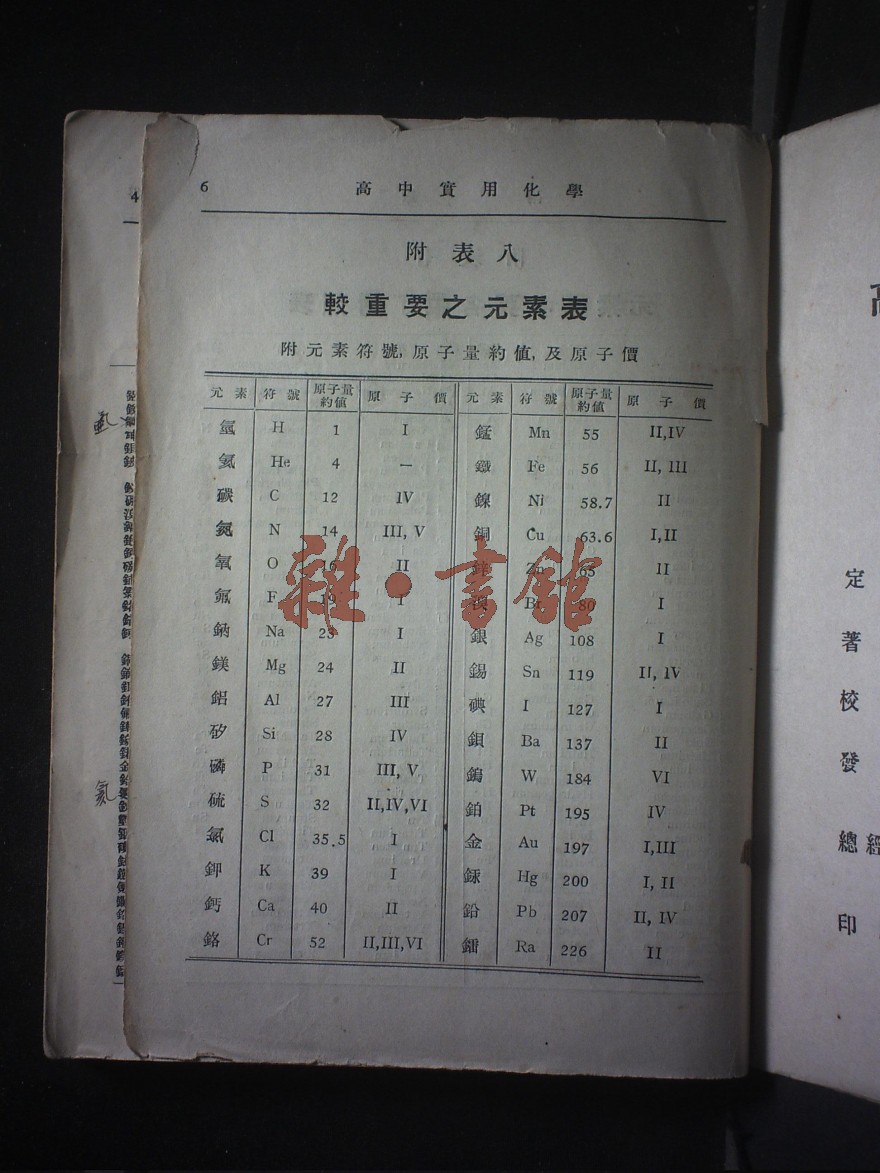 6 高中實用化學
附表八
較重要之元素表
附元素符號,原子量約值,及原子價
元素 符號 原子量約值 原子價 元素 符號 原子量約值 原子價
氫 H 1 I 錳 Mn 55 II,IV
氦 He 4 — 鐵 Fe 56 II, III
碳 C 12 IV 鎳 Ni 58.7 II
氮 N 14 III, V 銅 Cu 63.6 I,II
氧 O 16 II 鋅 Zn 65 II
氟 F 19 I Br 80 I
鈉 Na 23 I 銀 Ag 108 I
鎂 Mg 24 II 錫 Sn 119 II, IV
鋁 Al 27 III 碘 I 127 I
矽 Si 28 IV 鋇 Ba 137 II
磷 P 31 III, V 鎢 W 184 VI
硫 S 32 II,IV,VI 鉑 Pt 195 IV
氯 Cl 35.5 I 金 Au 197 I,III
鉀 K 39 I 銾 Hg 200 I, II
鈣 Ca 40 II 鉛 Pb 207 II, IV
鉻 Cr 52 II,III,VI 鐳 Ra 226 II
雜·書館
4
氦
定
著
校
發
總 經
印